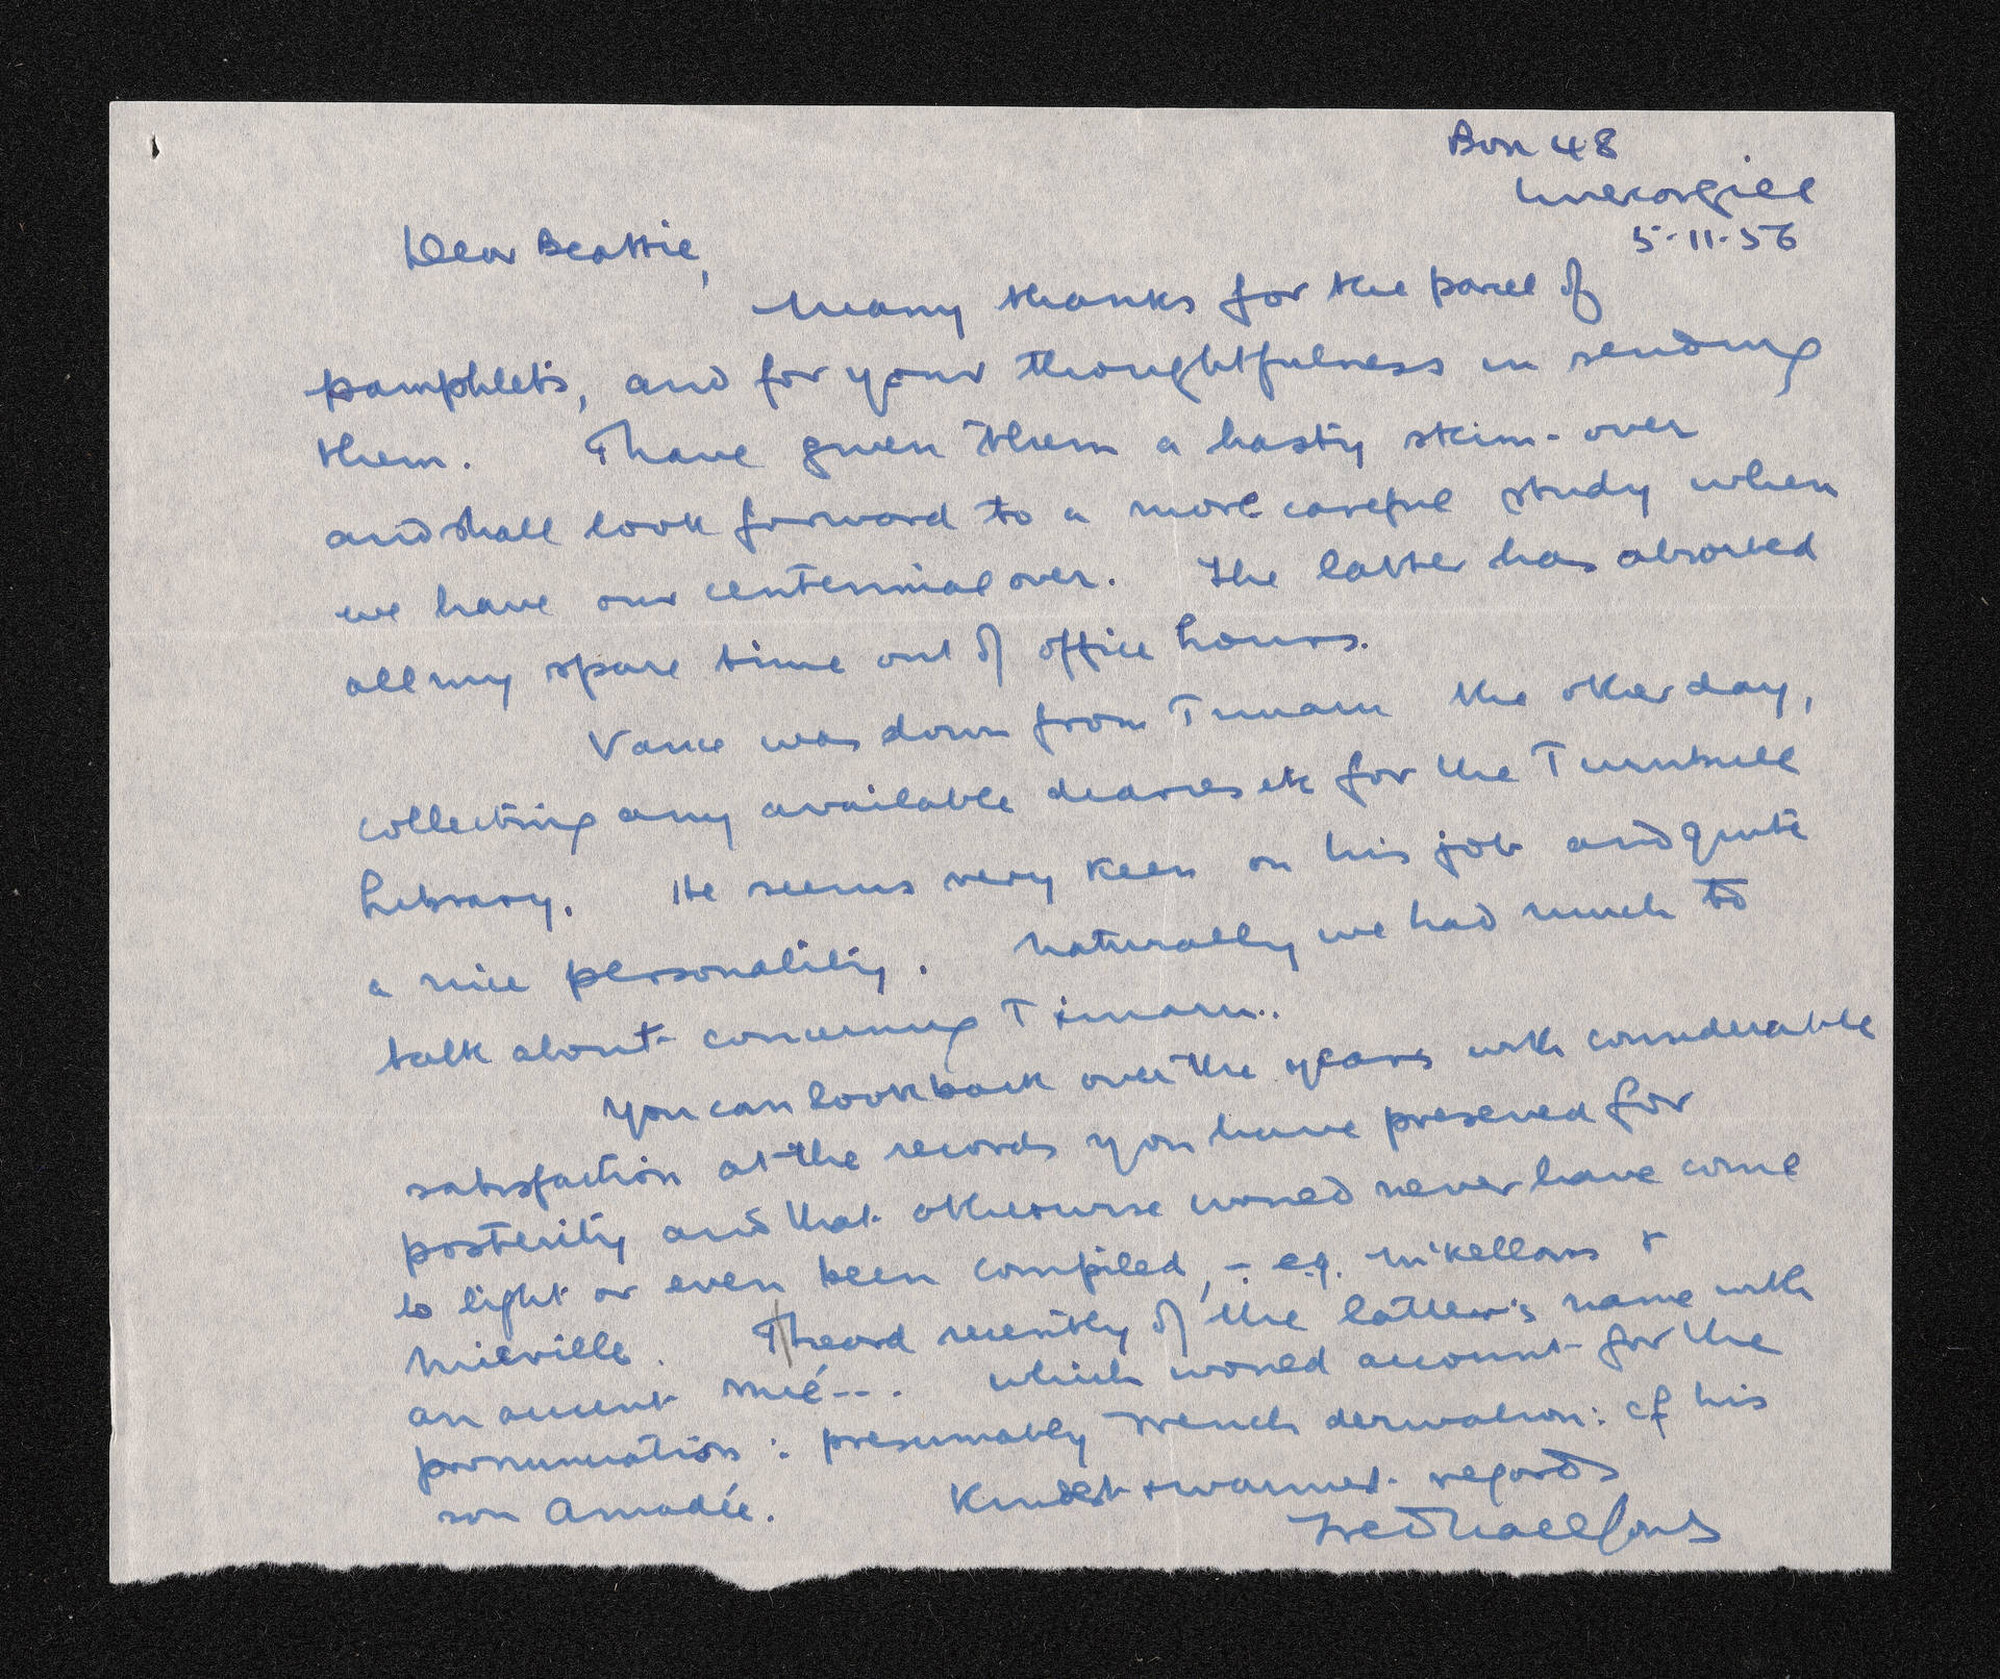 Box 48
Invercargill
5-11-56
Dear Beattie,
Many thanks for the parcel of
pamphlets, and for your thoughtfulness in sending
them. I have given them a hasty skim-over
and shall look forward to a more careful study when
we have our centennial over. The latter has absorbed
all my spare time out of office hours.
Vance was down from Timaru the other day,
collecting any available diaries etc for the Turnbull
Library. He seems very keen on his job and quite
a nice personality. Naturally we had much to
talk about concerning Timaru.
You can look back over the years with considerable
satisfaction at the records you have preserved for
posterity and that otherwise would never have come
to light or even been compiled, - e.g. McKellars &
Mieville. I heard recently of the latter's name with
an accent Mié--. which would account for the
pronunciation: presumably French derivation: cf his
son Amadée. Kindest & warmest regards